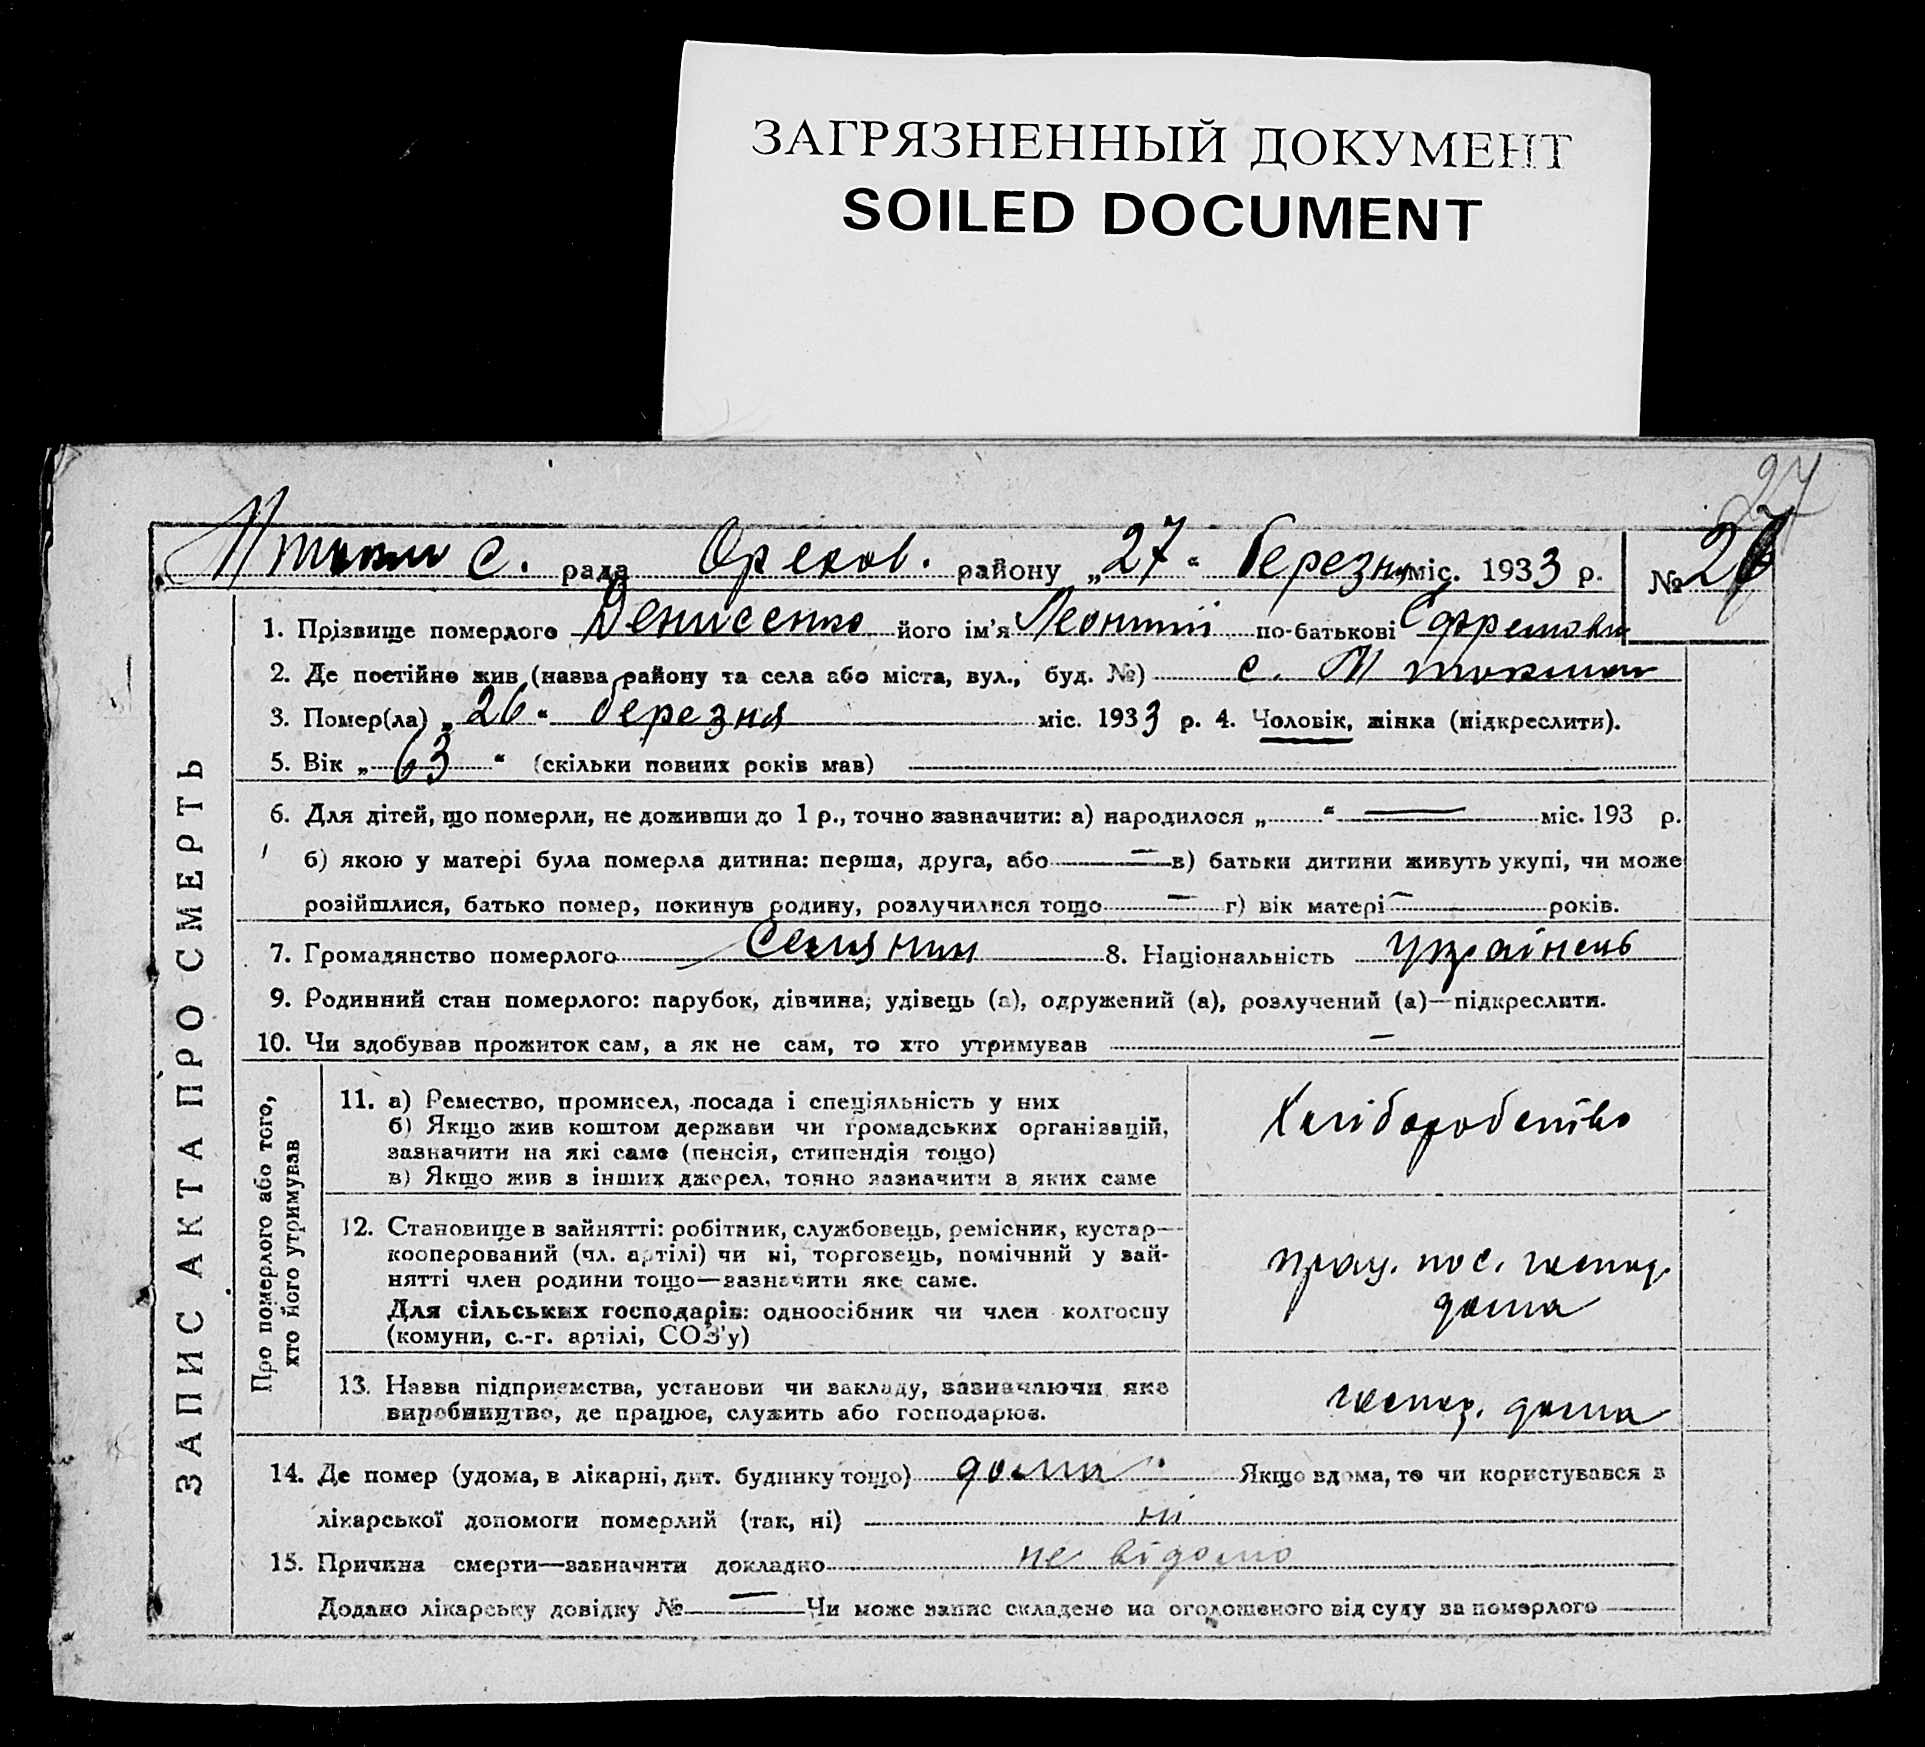 ЗАГРЯЗНЕННЫЙ ДОКУМЕНТ
SOILED DOCUMENT
27
М токмач с. рада Орехов. району „27“ березня міс. 1933 р. №
1. Прізвище померлого Денисенко його ім'я Леонтій по-батькові Єфремович
2. Де постійно жив (назва району та села або міста, вул., буд. №) с. М токмач
3. Помер(ла) „26“ березня міс. 1933 р. 4. Чоловік, жінка (підкреслити).
5. Вік „63“ (скільки повних років мав)
6. Для дітей, що померли, не доживши до 1 р., точно зазначити: а) народилося „ “ — міс. 193 р.
б) якою у матері була померла дитина: перша, друга, або — в) батьки дитини живуть укупі, чи може
розійшлися, батько помер, покинув родину, розлучилися тощо — г) вік матері — років.
7. Громадянство померлого селянин 8. Національність українець
9. Родинний стан померлого: парубок, дівчина, удівець (а), одружений (а), розлучений (а)—підкреслити.
10. Чи здобував прожиток сам, а як не сам, то хто утримував —
ЗАПИС АКТА ПРО СМЕРТЬ
Про померлого або того,
хто його утримував
11. а) Ремество, промисел, посада і спеціяльність у них
б) Якщо жив коштом держави чи громадських організацій,
зазначити на які саме (пенсія, стипендія тощо)
в) Якщо жив з інших джерел, точно зазначити з яких саме
Хліборобство
12. Становище в зайнятті: робітник, службовець, ремісник, кустар—
кооперований (чл. артілі) чи ні, торговець, помічний у зай-
нятті член родини тощо—зазначити яке саме.
Для сільських господарів: одноосібник чи член колгоспу
(комуни, с.-г. артілі, СОЗ'у)
прац. пос. господ.
дома
13. Назва підприємства, установи чи закладу, зазначаючи яке
виробництво, де працює, служить або господарює.
господ. дома
14. Де помер (удома, в лікарні, дит. будинку тощо) дома Якщо вдома, то чи користувався з
лікарської допомоги померлий (так, ні) ні
15. Причина смерти—зазначити докладно не відомо
Додано лікарську довідку № — Чи може запис складено на оголошеного від суду за померлого